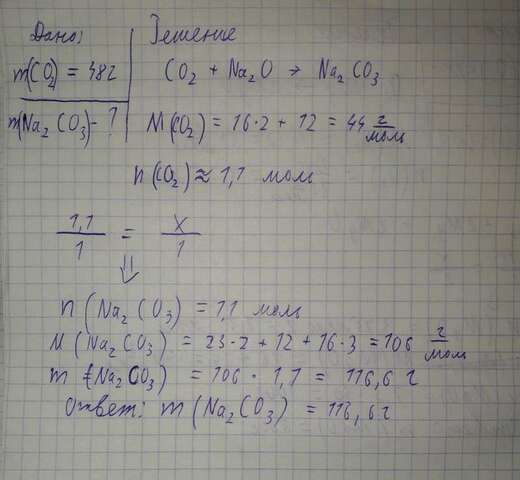 Дано:
Решение
m(CO2) = 48г
CO2 + Na2O → Na2CO3
m(Na2CO3) - ?
M(CO2) = 16·2 + 12 = 44 г/моль
n(CO2) ≈ 1,1 моль
1,1/1 = x/1
⇓
n(Na2CO3) = 1,1 моль
M(Na2CO3) = 23·2 + 12 + 16·3 = 106 г/моль
m(Na2CO3) = 106 · 1,1 = 116,6 г
Ответ: m(Na2CO3) = 116,6г